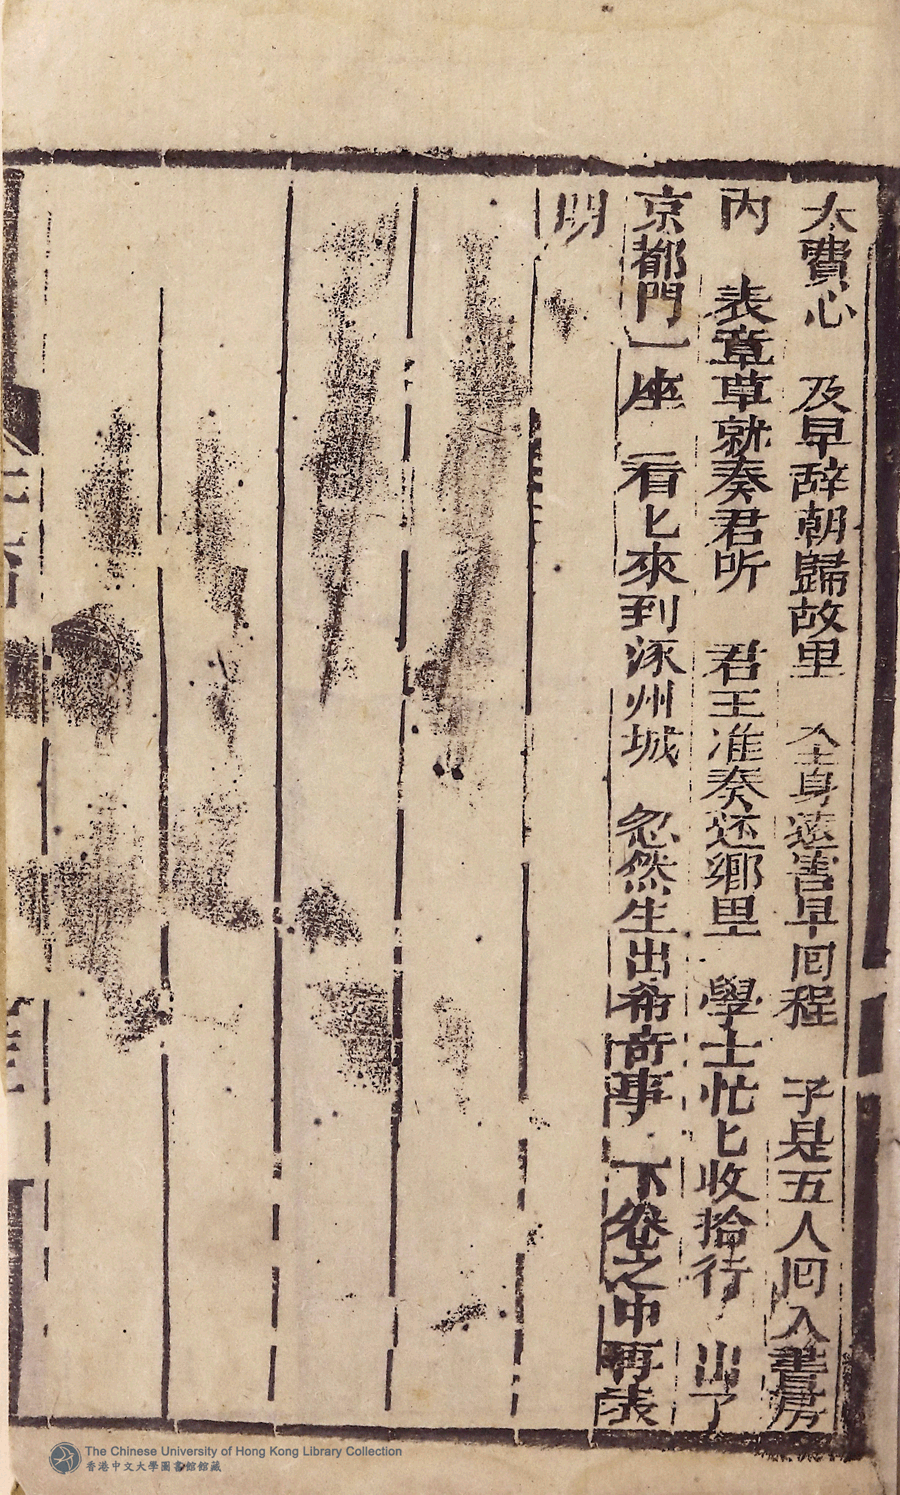 太費心　及早辞朝歸故里　全身遠害早回程　于是五人回入書房
內　表章草就奏君听　君王准奏还鄉里　學士忙匕收拾行　出了
京都門一座　看匕來到涿州城　忽然生出希奇事　下卷之中再表
明
The Chinese University of Hong Kong Library Collection
香港中文大學圖書館館藏